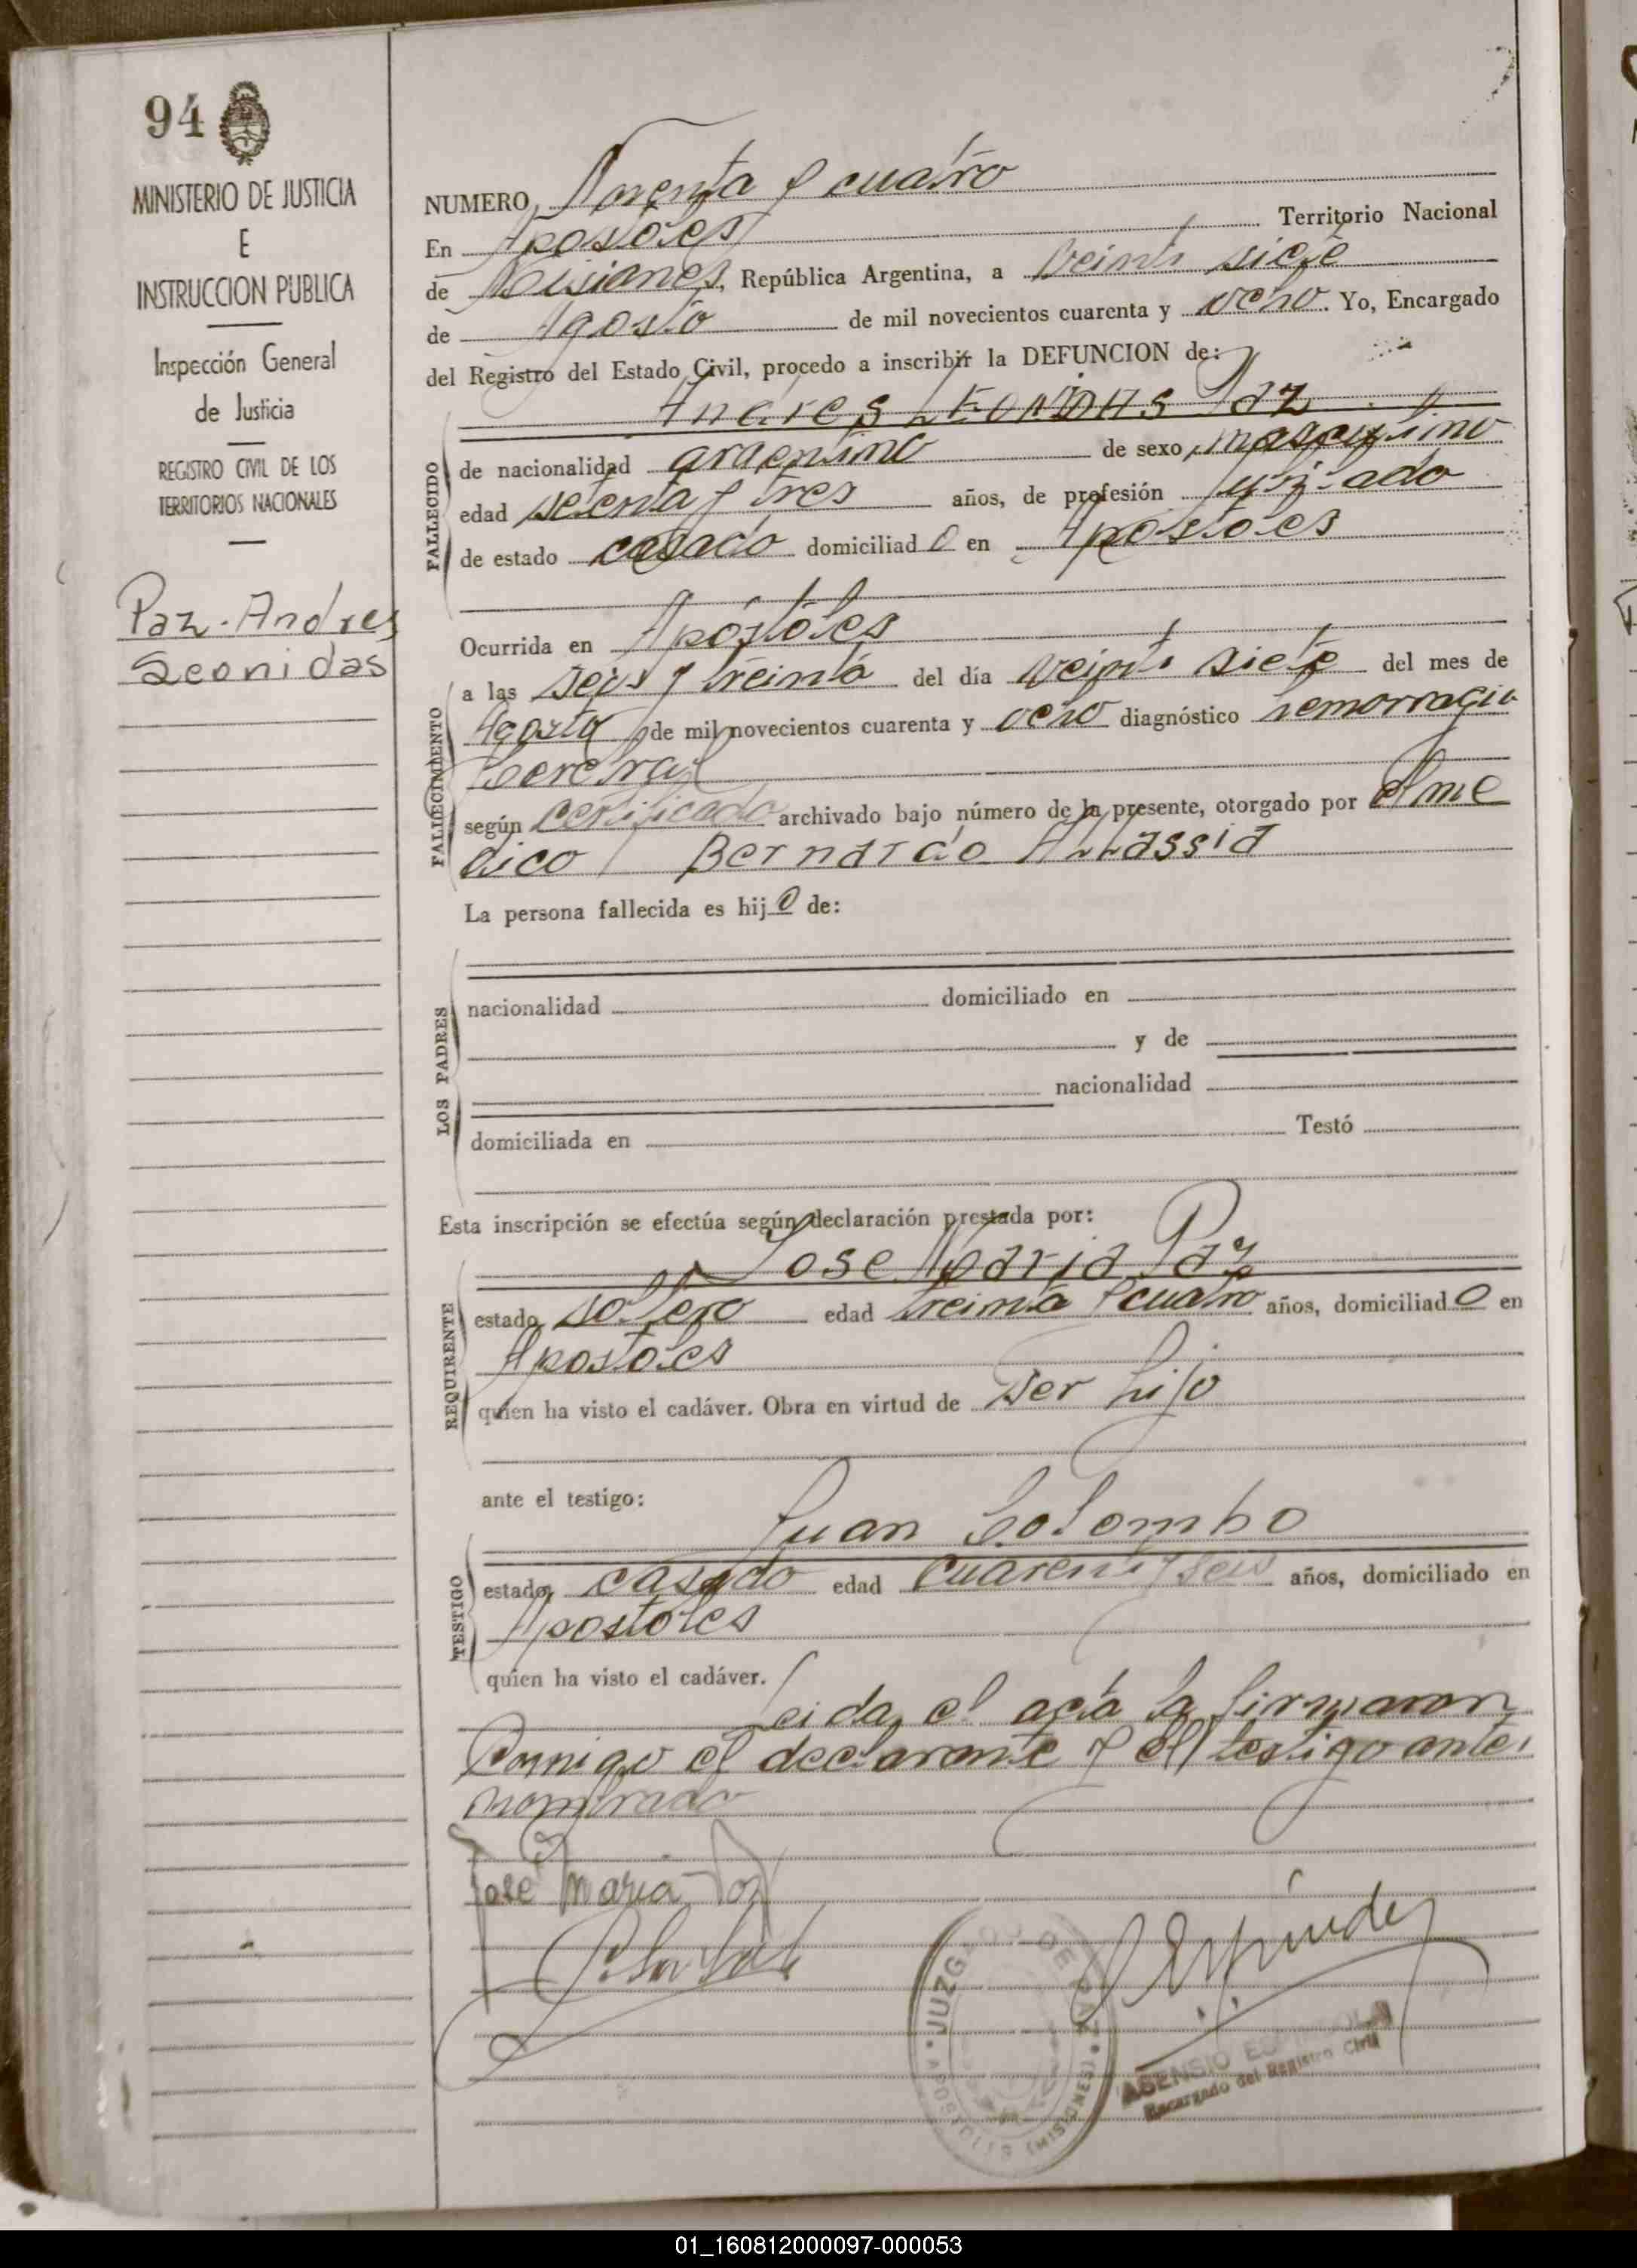 94
MINISTERIO DE JUSTICIA
E
INSTRUCCION PUBLICA
Inspección General
de Justicia
REGISTRO CIVIL DE LOS
TERRITORIOS NACIONALES
Paz-Andres
Leonidas
NUMERO Noventa y cuatro
En Apostoles Territorio Nacional
de Misiones, República Argentina, a veinti siete
de Agosto de mil novecientos cuarenta y ocho. Yo, Encargado
del Registro del Estado Civil, procedo a inscribir la DEFUNCION de:
Andres LEONIDAS Paz
FALLECIDO
de nacionalidad argentino de sexo masculino
edad setenta y tres años, de profesión jubilado
de estado casado domiciliado en Apostoles
FALLECIMIENTO
Ocurrida en Apóstoles
a las seis y treinta del día veinti siete del mes de
Agosto de mil novecientos cuarenta y ocho diagnóstico hemorragia
Cerebral
según certificado archivado bajo número de la presente, otorgado por el me
dico Bernardo
La persona fallecida es hijo de:
LOS PADRES
nacionalidad domiciliado en
y de
nacionalidad
domiciliada en Testó
Esta inscripción se efectúa según declaración prestada por:
Jose Maria Paz
REQUIRENTE
estado soltero edad treinta y cuatro años, domiciliado en
Apostoles
quien ha visto el cadáver. Obra en virtud de ser hijo
ante el testigo:
Juan Colombo
TESTIGO
estado casado edad cuarenta y seis años, domiciliado en
Apostoles
quien ha visto el cadáver.
Leida el acta la firmaron
Conmigo el declarante y el testigo ante
nombrado
José Maria Paz
JUZGADO DE PAZ
APOSTOLES (MISIONES)
ASENSIO
Encargado del Registro Civil
01_160812000097-000053